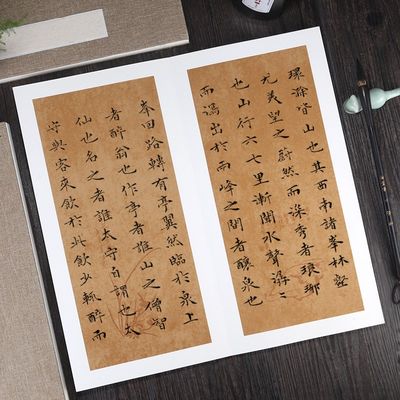 環滁皆山也其西南諸峯林壑
尤美望之蔚然而深秀者琅琊
也山行六七里漸聞水聲潺〻
而瀉出於兩峰之間者釀泉也
峯回路轉有亭翼然臨於泉上
者醉翁亭也作亭者誰山之僧智
仙也名之者誰太守自謂也太
守與客來飲於此飲少輒醉而